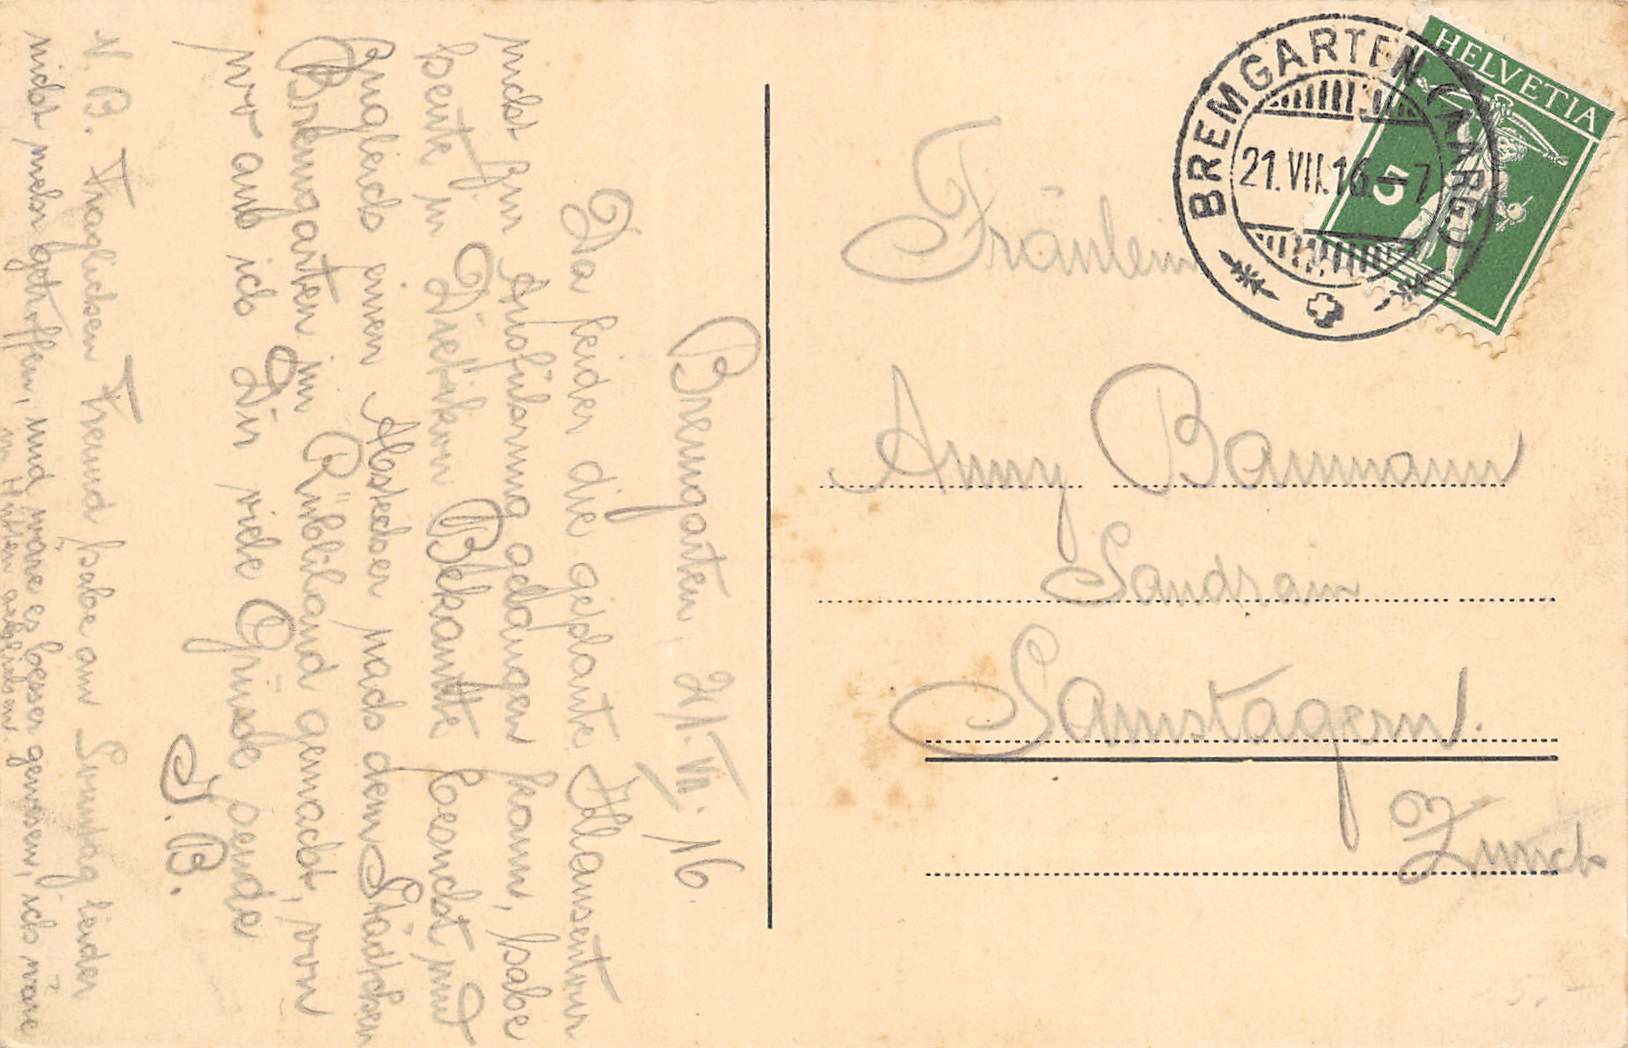 Bremgarten, 21. VII. 16.
Da leider die geplante Klausentour
nicht zur Ausführung gelangen kann, habe
heute in Dietikon Bekannte besucht und
zugleich einen Abstecher nach dem Städtchen
Bremgarten im Rübliland gemacht, von
wo aus ich Dir viele Grüsse sende
J. B.
N. B. Fraglichen Freund habe am Sonntag leider
nicht mehr getroffen, und wäre es besser gewesen, ich wäre
in Hütten geblieben
Fräulein
Anny Baumann
Sandrain
Samstagern.
Zürich
HELVETIA
5
BREMGARTEN (AARG.)
21.VII.16.-7